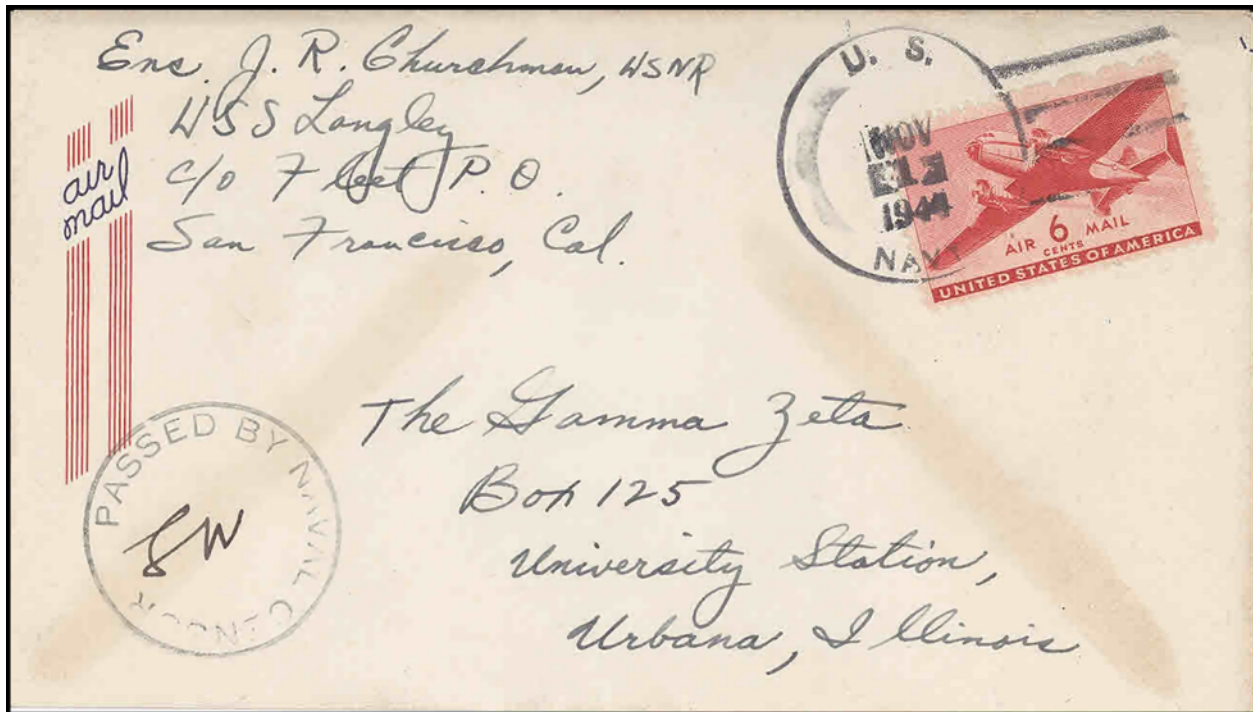 Ens. J. R. Churchman, USNR
USS Langley
c/o Fleet P. O.
San Francisco, Cal.
air
mail
U. S.
NOV
1944
NAVY
AIR 6 MAIL
CENTS
UNITED STATES OF AMERICA
PASSED BY NAVAL CENSOR
The Gamma Zeta
Box 125
University Station,
Urbana, Illinois